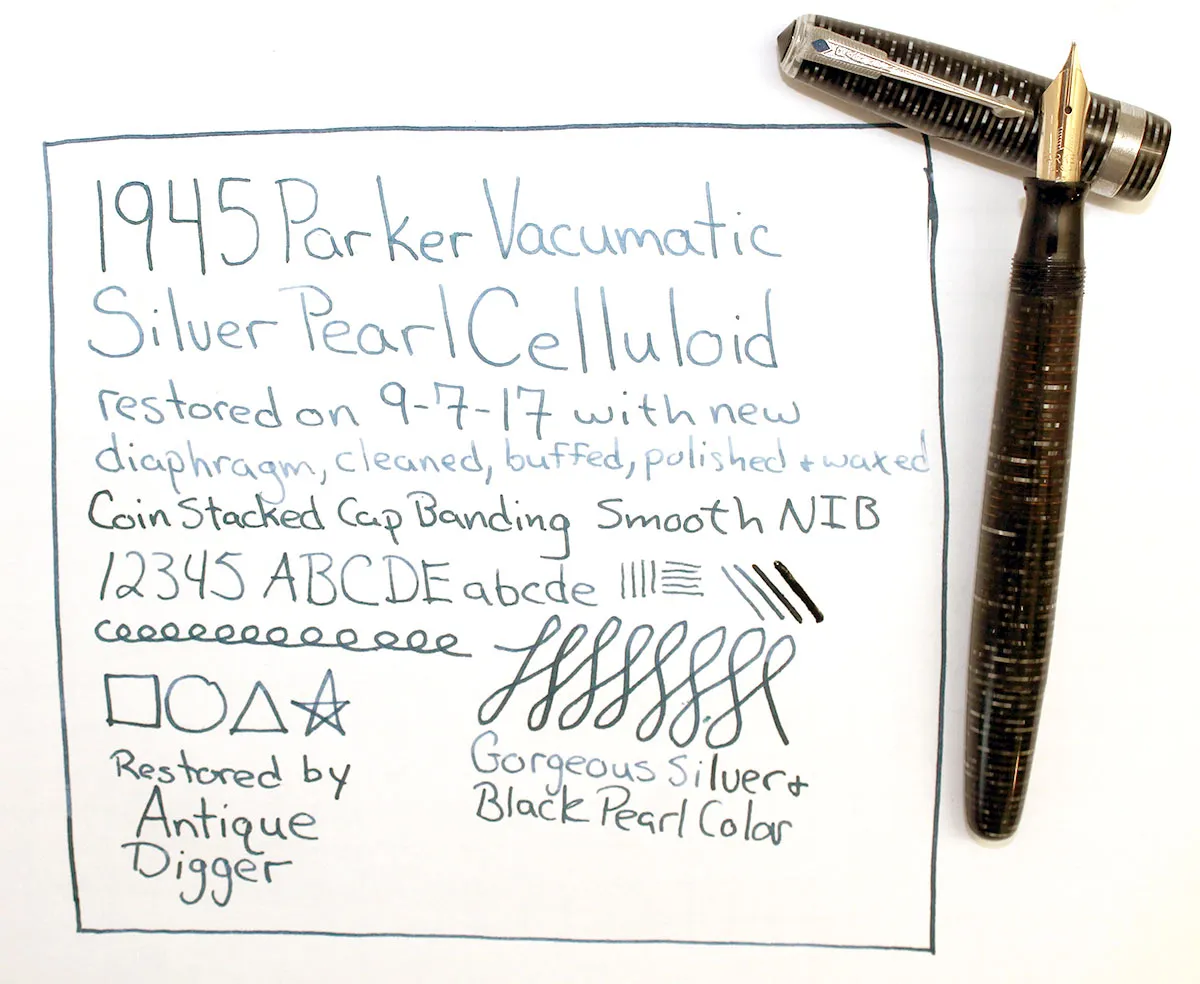 1945 Parker Vacumatic
Silver Pearl Celluloid
restored on 9-7-17 with new
diaphragm, cleaned, buffed, polished + waxed
Coin Stacked Cap Banding Smooth NIB
12345 ABCDE abcde
Restored by
Antique
Digger
Gorgeous Silver +
Black Pearl Color